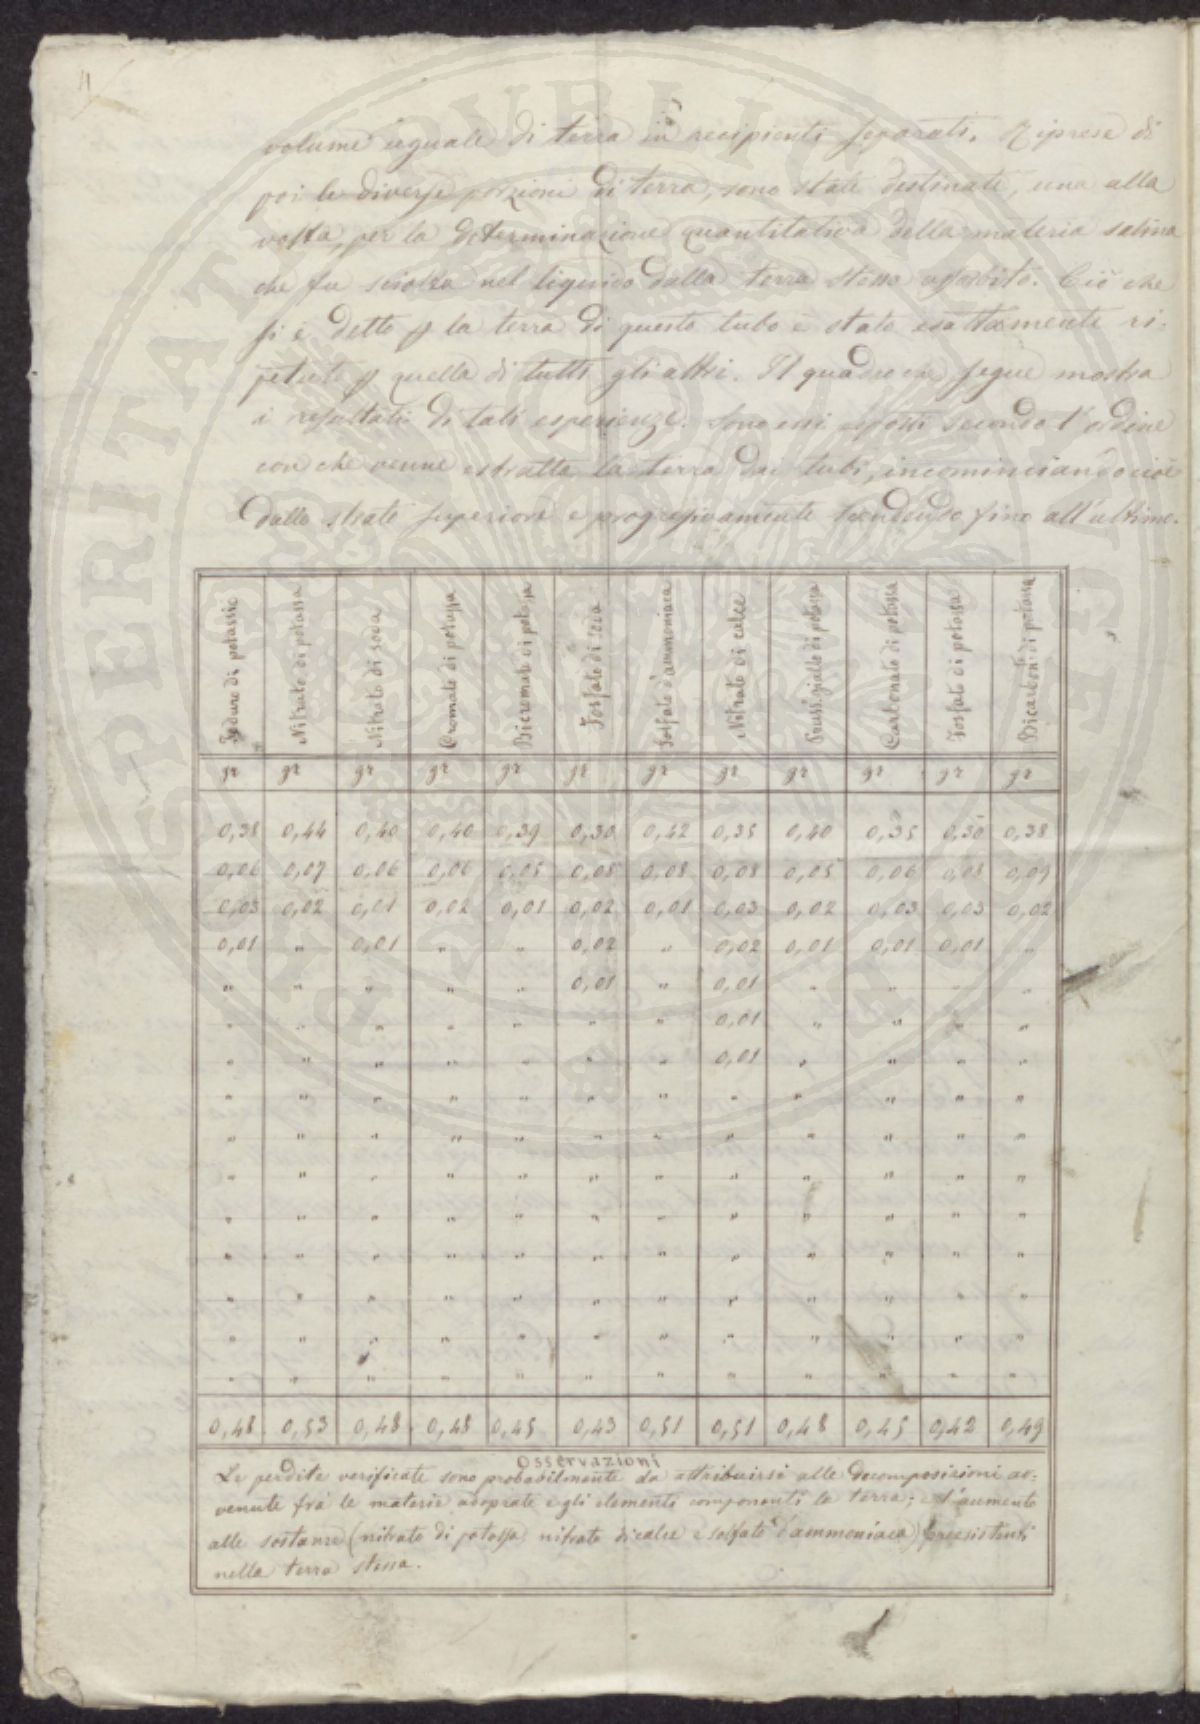 volume uguale di terra in recipienti separati. Riprese di
poi le diverse porzioni di terra, sono state destinate, una alla
volta, per la determinazione quantitativa della materia salina
che fu sciolta nel liquido dalla terra stessa assorbito. Ciò che
si è detto p la terra di questo tubo è stato esattamente ri-
petuto p quella di tutti gli altri. Il quadro che segue mostra
i resultati di tali esperienze. Sono essi esposti secondo l'ordine
con che venne estratta la terra dai tubi, incominciando cioè
dallo strato superiore e progressivamente scendendo fino all'ultimo.
Joduro di potassio Nitrato di potassa Nitrato di soda Cromato di potassa Bicromato di potassa Fosfato di soda Solfato d'ammoniaca Nitrato di calce Pruss. giallo di potassa Carbonato di potassa Fosfato di potassa Bicarbon: di potassa
gr gr gr gr gr gr gr gr gr gr gr gr
0,38 0,44 0,40 0,40 0,39 0,30 0,42 0,35 0,40 0,35 0,30 0,38
0,06 0,07 0,06 0,06 0,05 0,08 0,08 0,08 0,05 0,06 0,08 0,09
0,03 0,02 0,01 0,02 0,01 0,02 0,01 0,03 0,02 0,03 0,03 0,02
0,01 " 0,01 " " 0,02 " 0,02 0,01 0,01 0,01 "
" " " " " 0,01 " 0,01 " " " "
" " " " " " " 0,01 " " " "
" " " " " " " 0,01 " " " "
" " " " " " " " " " " "
" " " " " " " " " " " "
" " " " " " " " " " " "
" " " " " " " " " " " "
" " " " " " " " " " " "
" " " " " " " " " " " "
" " " " " " " " " " " "
" " " " " " " " " " " "
0,48 0,53 0,48 0,48 0,45 0,43 0,51 0,51 0,48 0,45 0,42 0,49
Osservazioni
Le perdite verificate sono probabilmente da attribuirsi alle decomposizioni av-
venute frà le materie adoprate e gli elementi componenti la terra; e l'aumento
alle sostanze (nitrato di potassa nitrato di calce e solfato d'ammoniaca) preesistenti
nella terra stessa.